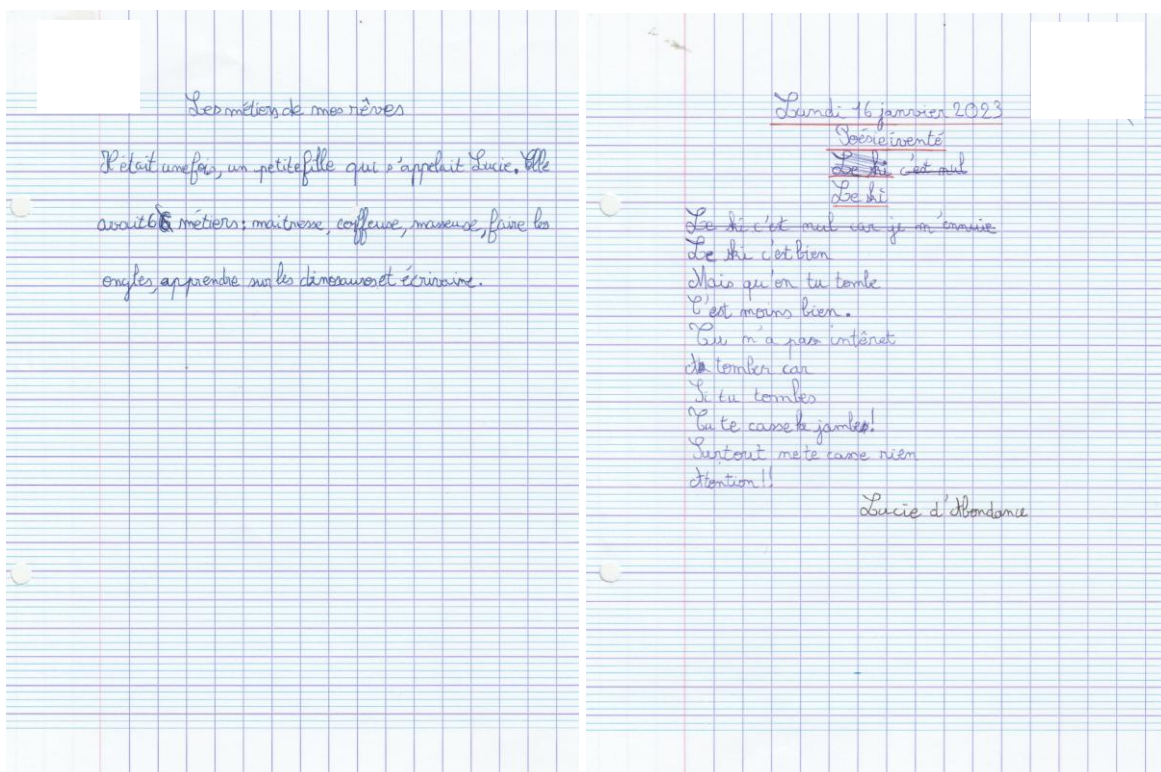 Les métiers de mes rêves
Il était une fois, un petite fille qui s'appelait Lucie. Elle
avait 6 métiers : maitresse, coiffeuse, masseuse, faire les
ongles, apprendre sur les dinosaures et écrivaine.
Lundi 16 janvier 2023
Poésie inventé
Le ski c'est nul
Le ski
Le ski c'est nul car je m'ennuie
Le ski c'est bien
Mais qu'on tu tombe
C'est moins bien.
Tu n'a pas intêret
à tomber car
Si tu tombes
Tu te casse la jambe!
Surtout ne te casse rien
Atention!!
Lucie d'Abondance